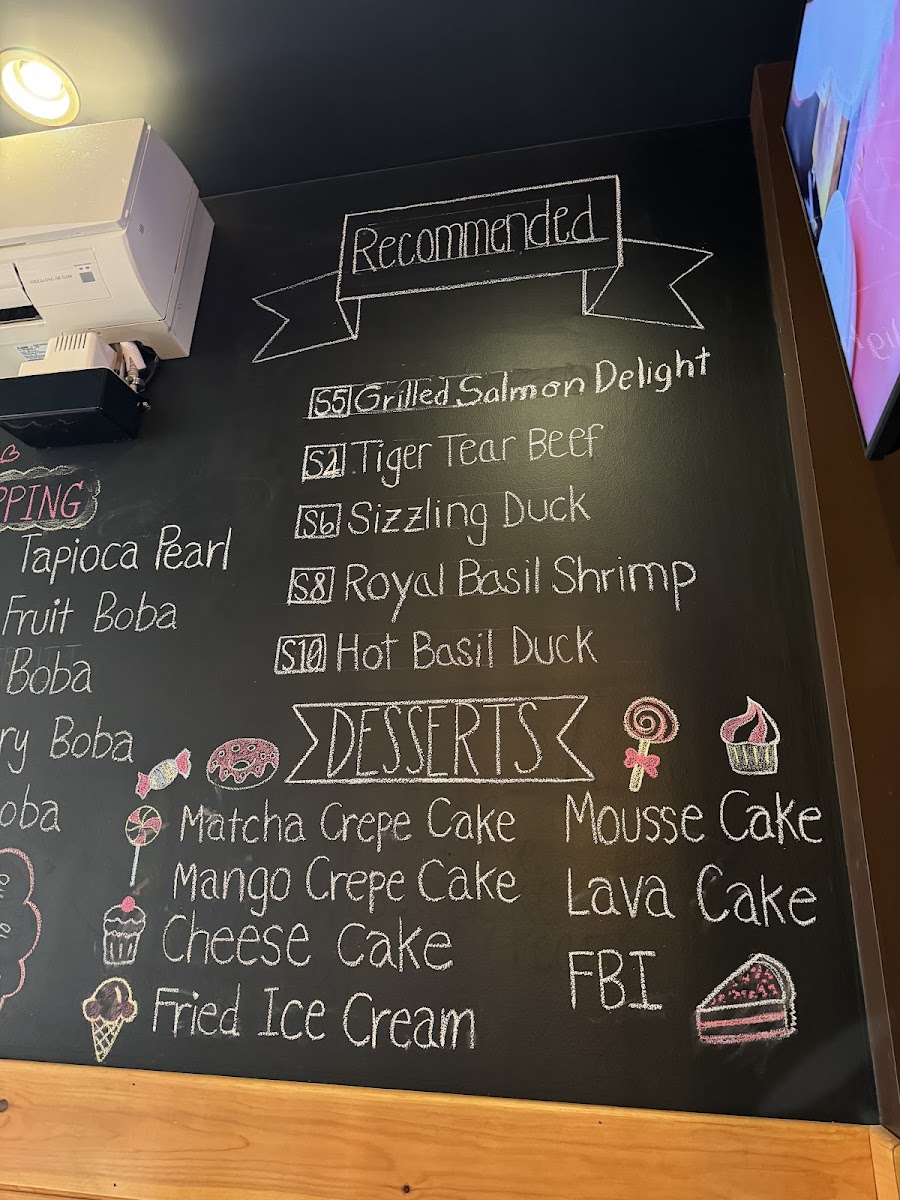 Recommended
S5 Grilled Salmon Delight
S2 Tiger Tear Beef
S6 Sizzling Duck
S8 Royal Basil Shrimp
S10 Hot Basil Duck
PPING
Tapioca Pearl
Fruit Boba
Boba
ry Boba
oba
DESSERTS
Matcha Crepe Cake
Mango Crepe Cake
Cheese Cake
Fried Ice Cream
Mousse Cake
Lava Cake
FBI